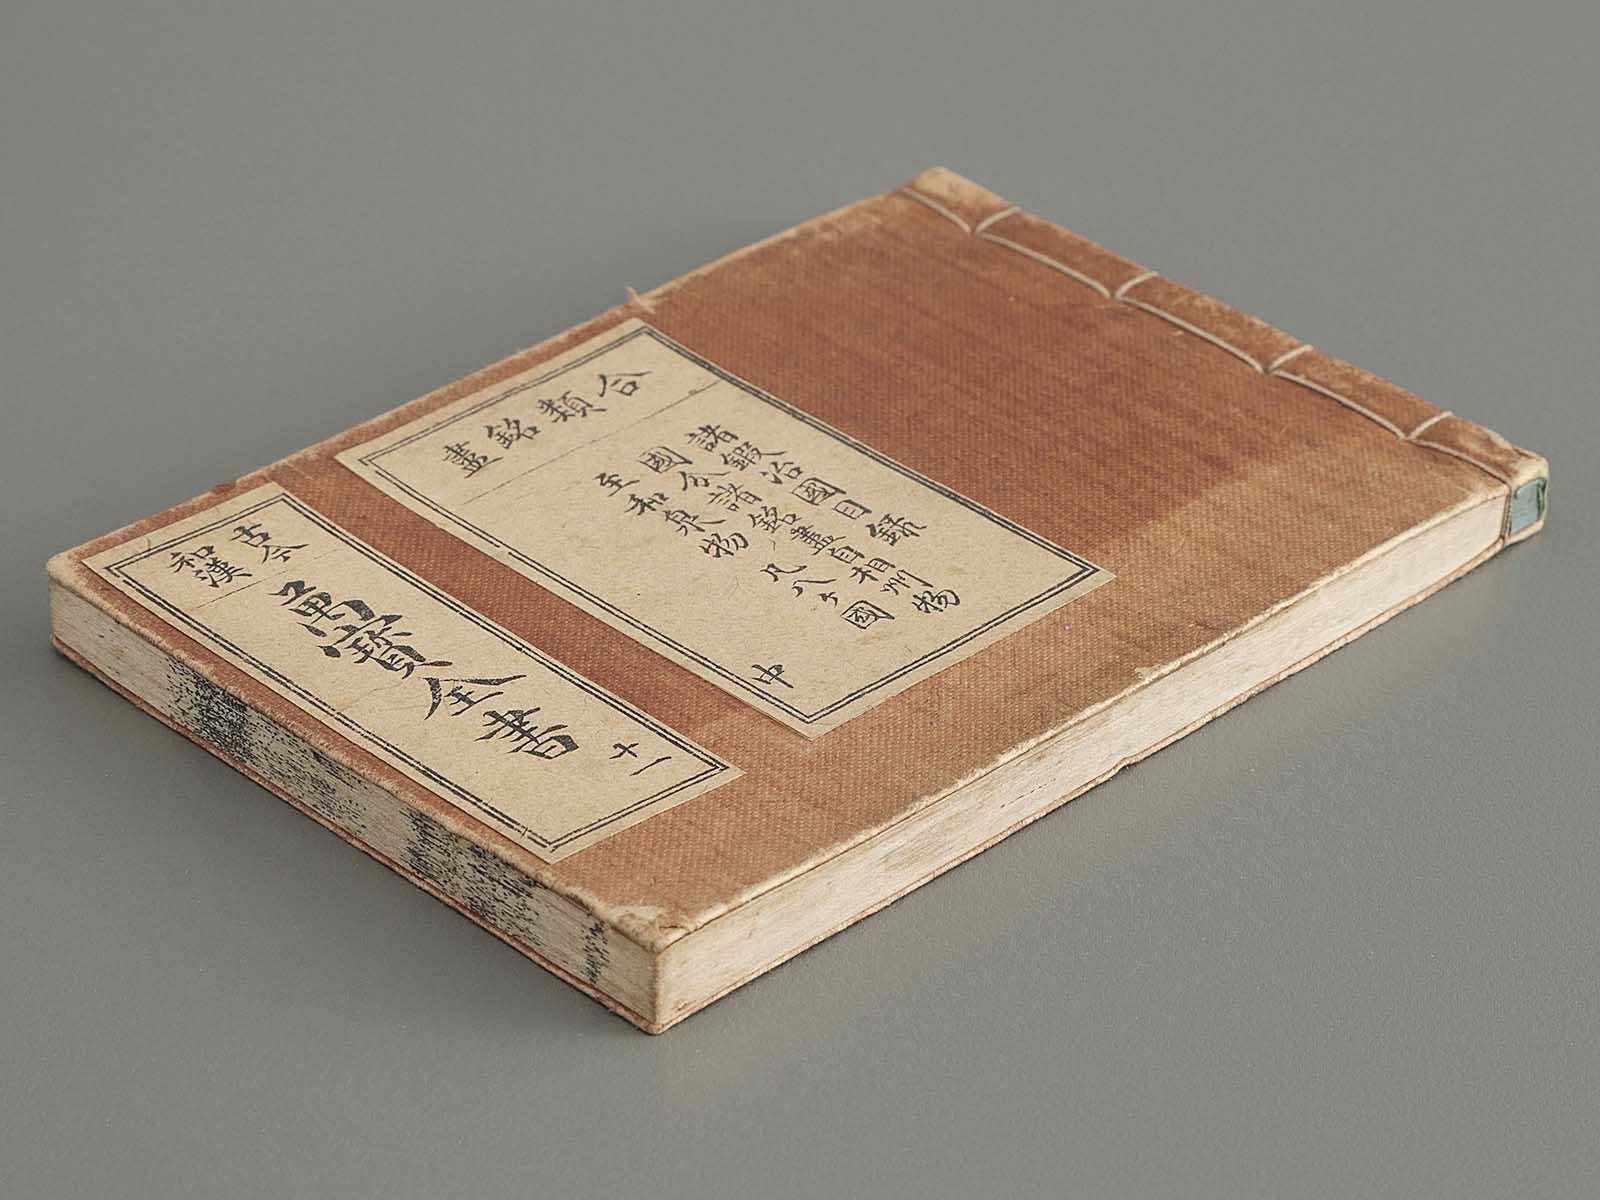 合類銘盡
諸鍛冶國目録
國分諸銘盡自相州物
至和泉物、凡八ヶ國
中
古今
和漢
萬寶全書
十一